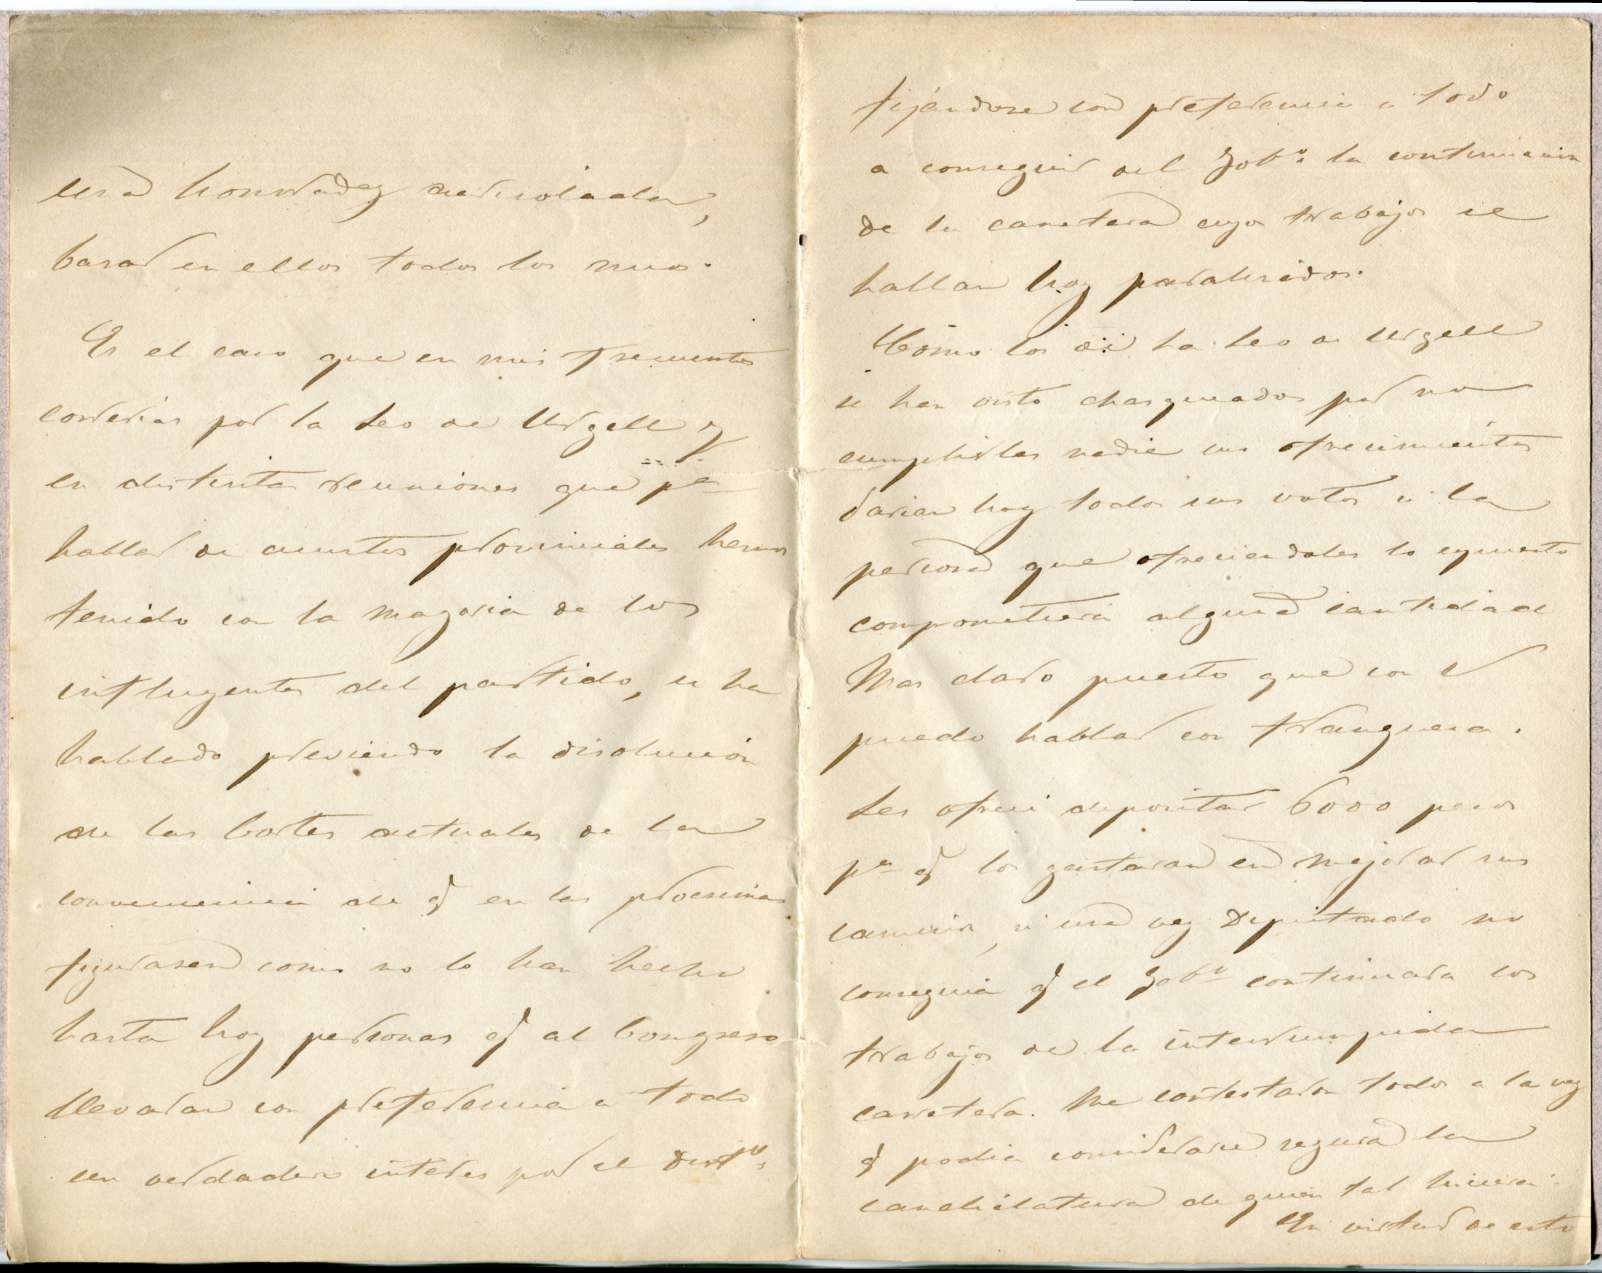 una honradez acrisolada,
basar en ellos todos los mios.
Es el caso que en mis frecuentes
correrias por la Seo de Urgell y
en distintas reuniones que pa
hablar de asuntos provinciales hemos
tenido con la mayoria de los
influyentes del partido, se ha
hablado previendo la disolución
de las Cortes actuales de la
conveniencia de q en las procsimas
figurasen como no lo han hecho
hasta hoy personas q al Congreso
llevaran con preferencia a todo
un verdadero interes por el Distto,
fijandose con preferencia a todo
a conseguir del Gobo la continuacion
de la carretera cuyos trabajos se
hallan hoy paralizados.
Como los de la Seo de Urgell
se han visto chasqueados por no
cumplirles nadie sus ofrecimientos
darian hoy todos sus votos a la
persona que ofreciendoles lo espuesto
comprometiera alguna cantidad
Mas claro puesto que con V
puedo hablar con franqueza.
Les ofreci depositar 6000 pesos
pa q los gastaran en mejorar sus
caminos, si una vez Diputado no
conseguia q el Gobo continuara los
trabajos de la interrumpida
carretera. Me contestaron todos a la vez
q podia considerarse segura la
candidatura de quien tal hiciera.
En virtud de esto